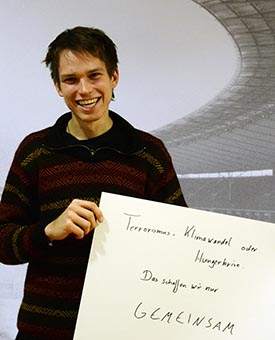 Terrorismus. Klimawandel oder
Hungerkrise.
Das schaffen wir nur
GEMEINSAM